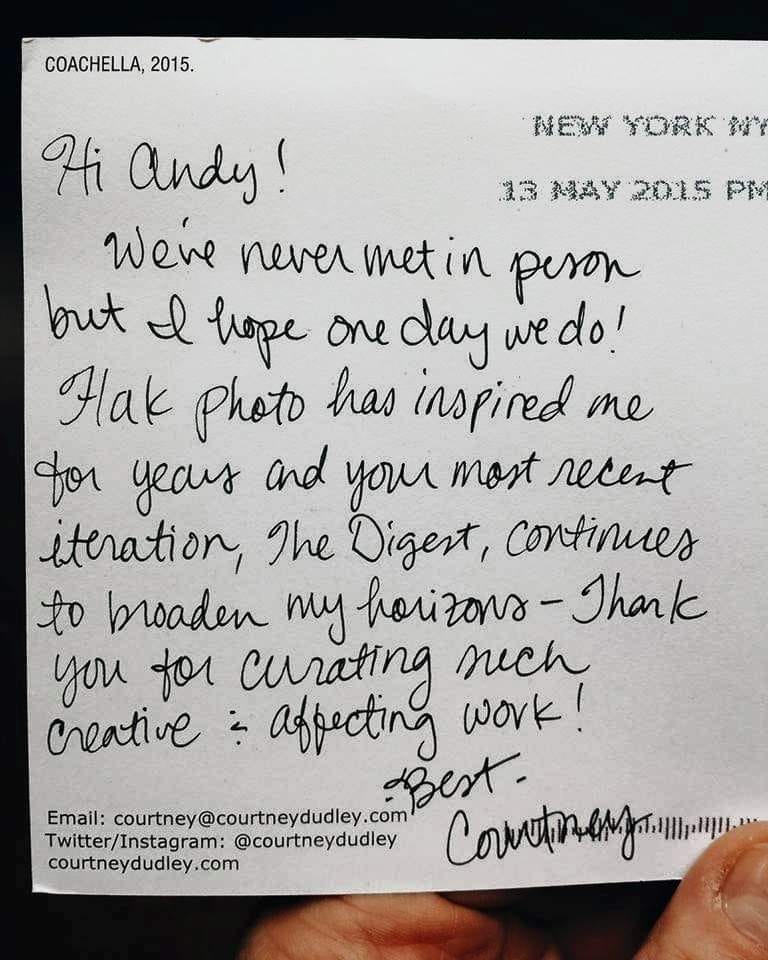 COACHELLA, 2015.
NEW YORK NY
13 MAY 2015 PM
Hi Andy!
We've never met in person
but I hope one day we do!
Flak Photo has inspired me
for years and your most recent
iteration, The Digest, continues
to broaden my horizons - Thank
you for curating such
creative & affecting work!
Best.
Courtney
Email: courtney@courtneydudley.com
Twitter/Instagram: @courtneydudley
courtneydudley.com